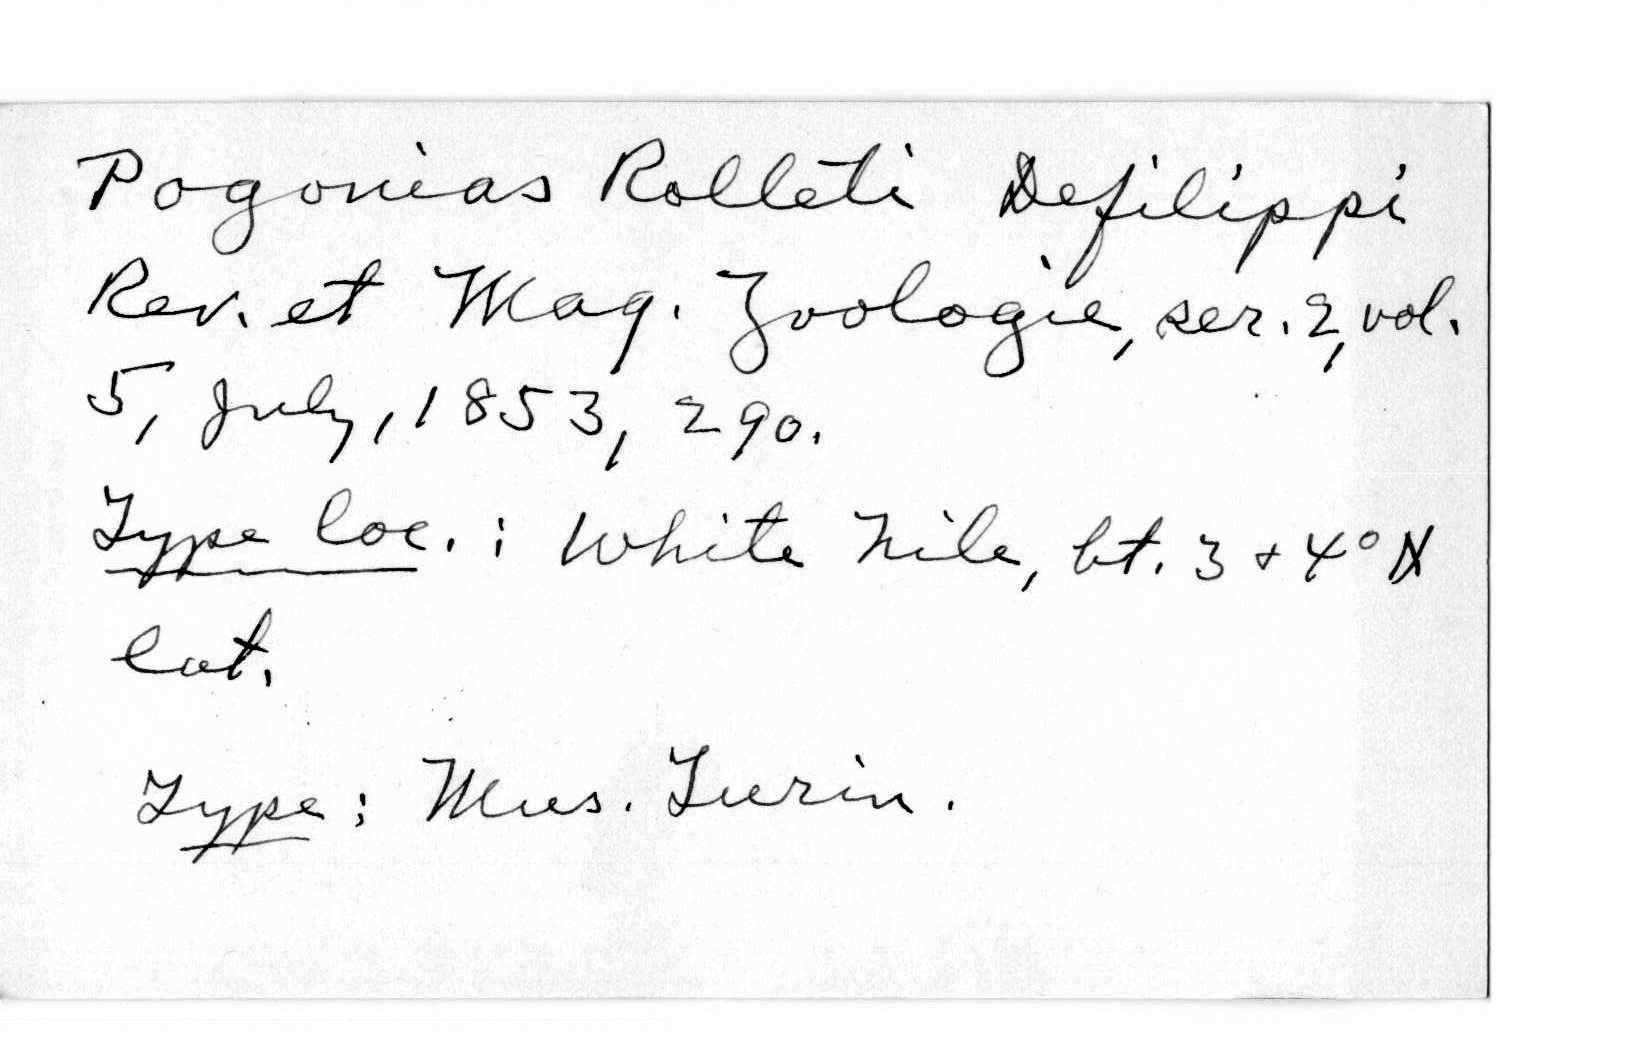 Pogonias Rolleti Defilippi
Rev. et Mag. Zoologie, ser. 2, vol.
5, July, 1853, 290.
Type loc.: White Nile, bt. 3 + 4° N
lat.
Type: Mus. Turin.